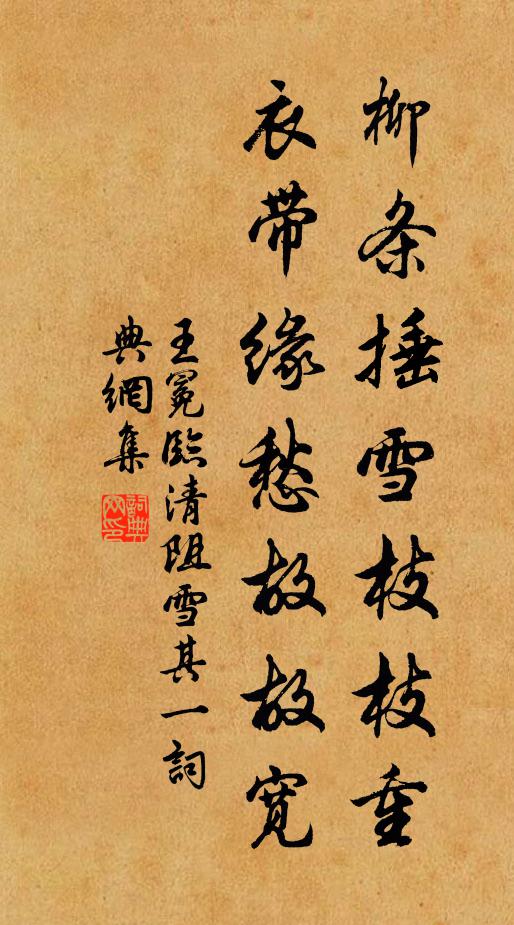 柳条捶雪枝枝重
衣带缘愁故故宽
王冕臨清阻雪其一詞
典網集
詞典
网印